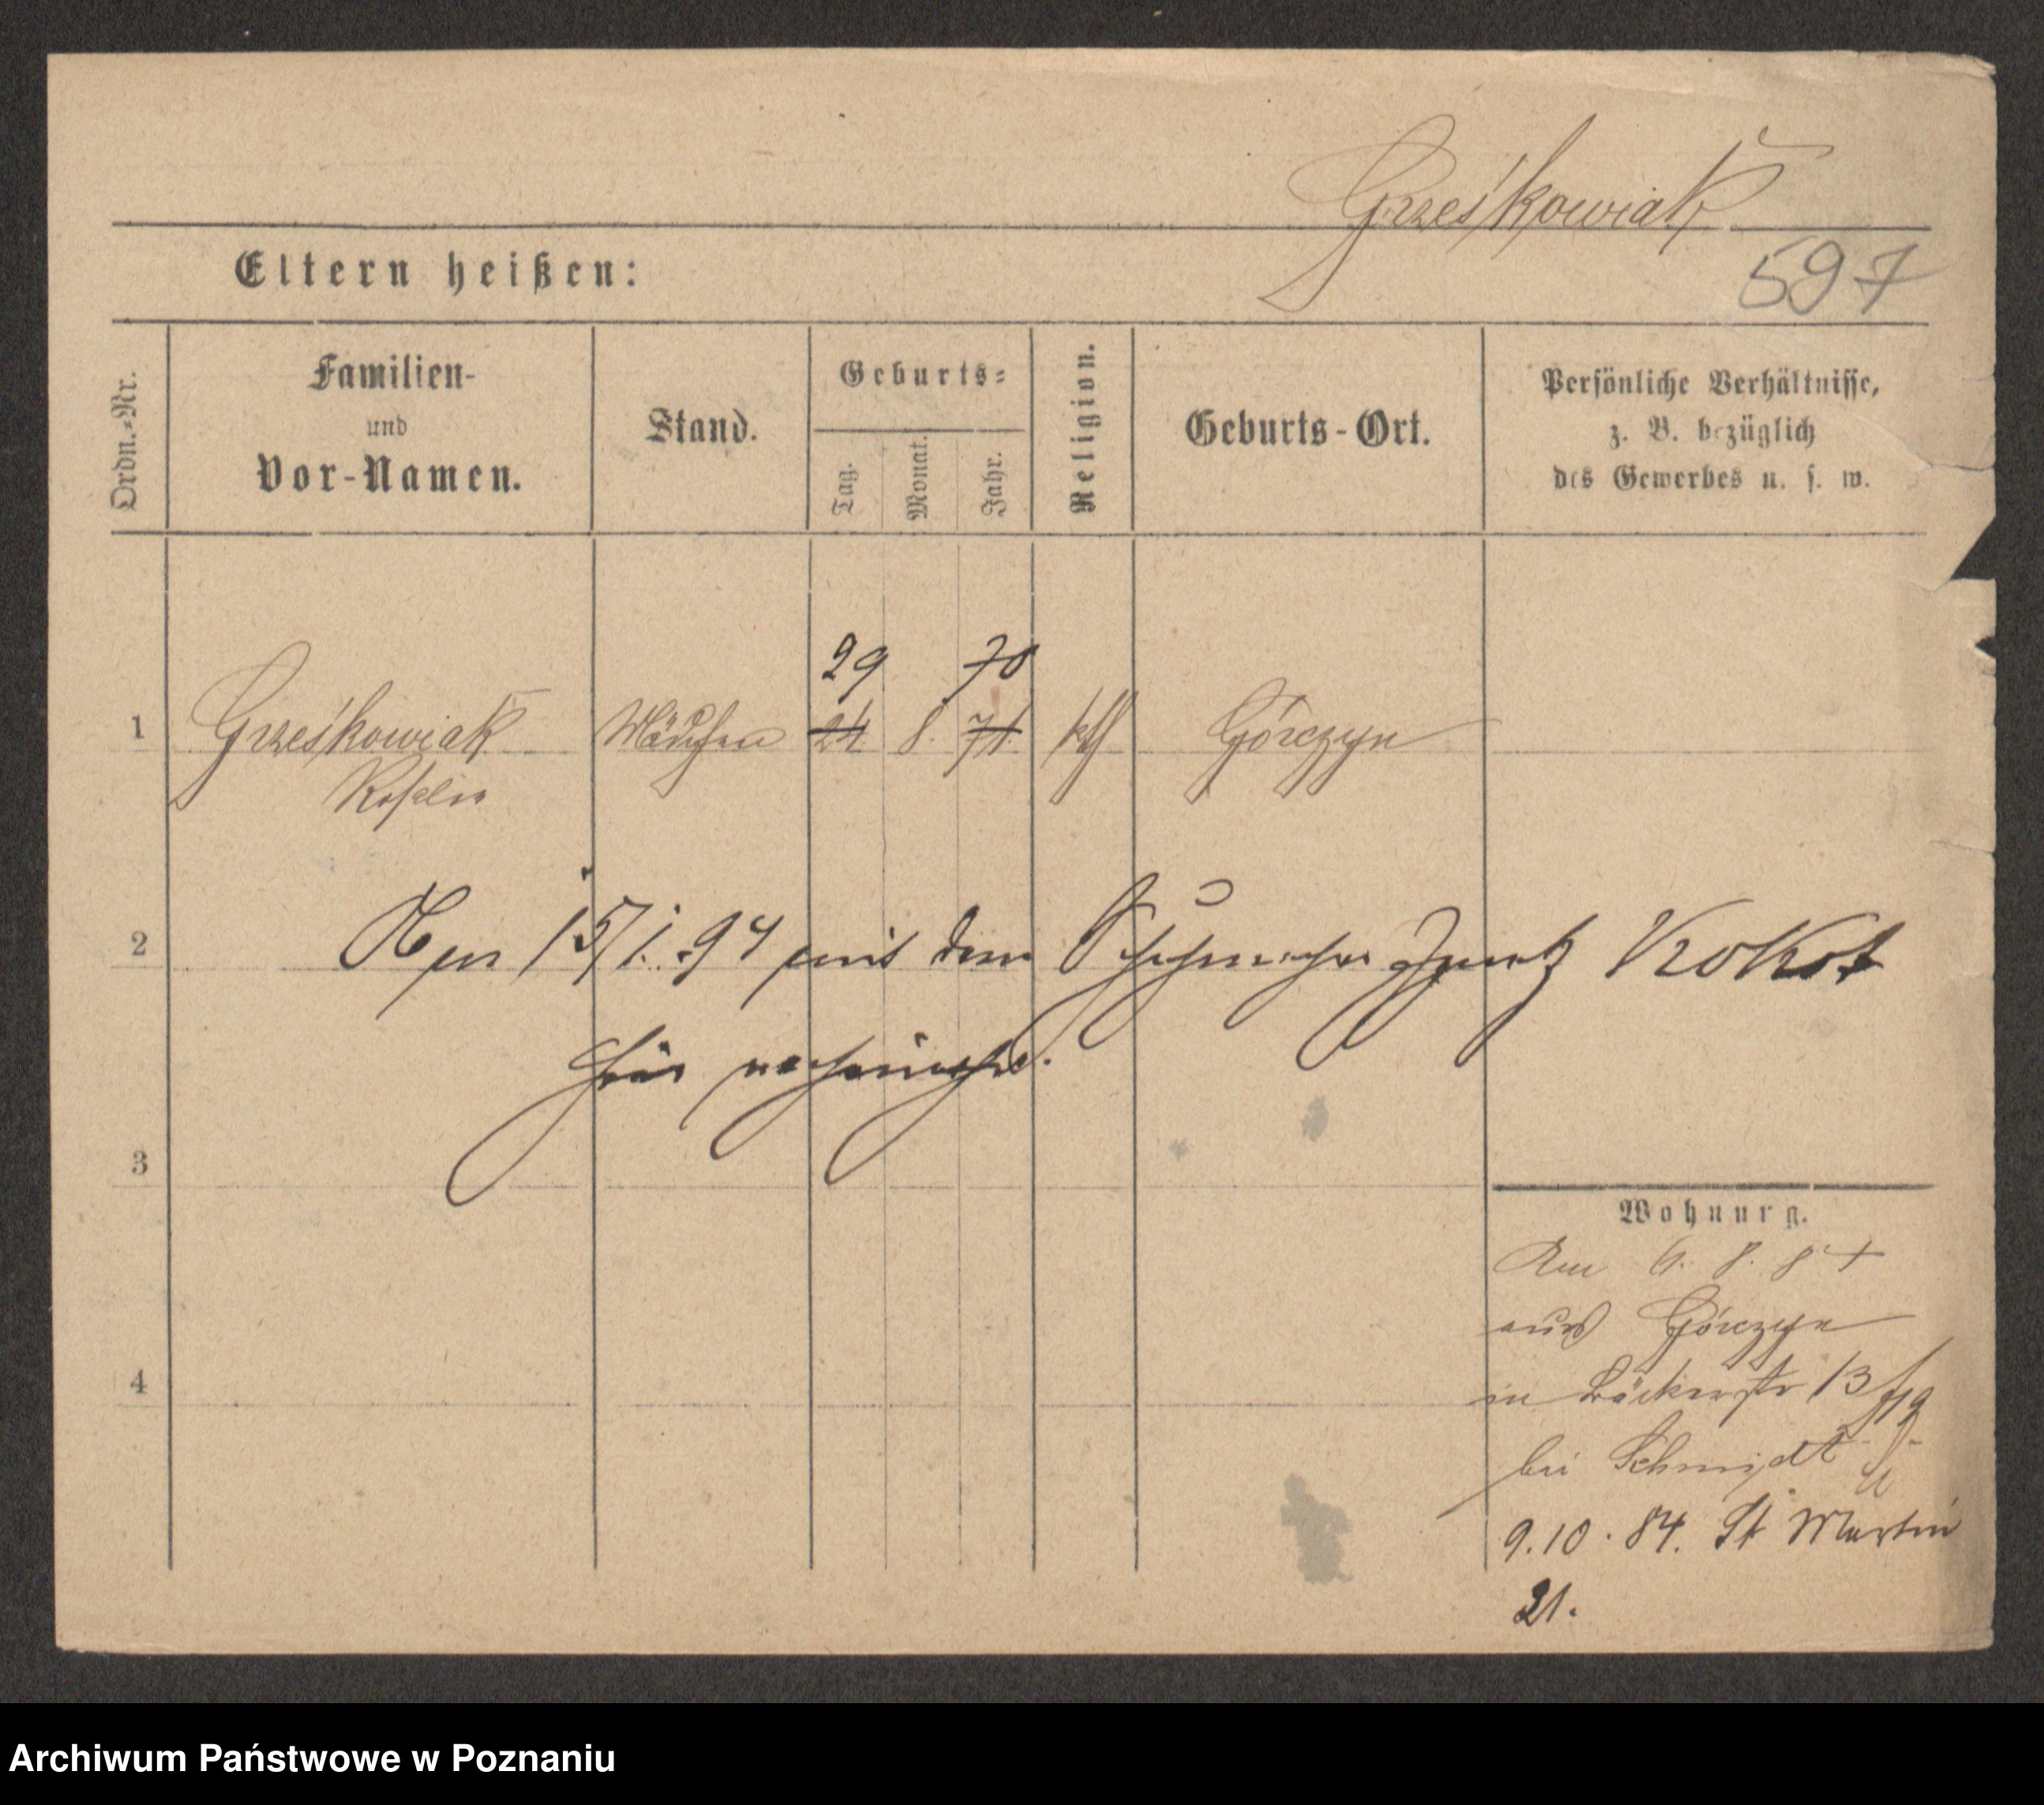 Grześkowiak
597
Eltern heißen:
Ordn.-Nr.
Familien-
und
Vor-Namen.
Stand.
Geburts-
Tag.
Monat.
Jahr.
Religion.
Geburts-Ort.
Persönliche Verhältnisse,
z. B. bezüglich
des Gewerbes u. s. w.
29 70
1 Grześkowiak Mädchen 24 8. 71. kth Górczyn
Rosalie
2 Am 15/1. 94 mit dem Schuhmacher Ignatz Kokot
hier verheirathet.
3
Wohnung.
Am 6. 8. 84
aus Górczyn
4
in Bäckerstr 13
bei Schmidt
9.10.84. St Martin
21.
Archiwum Państwowe w Poznaniu